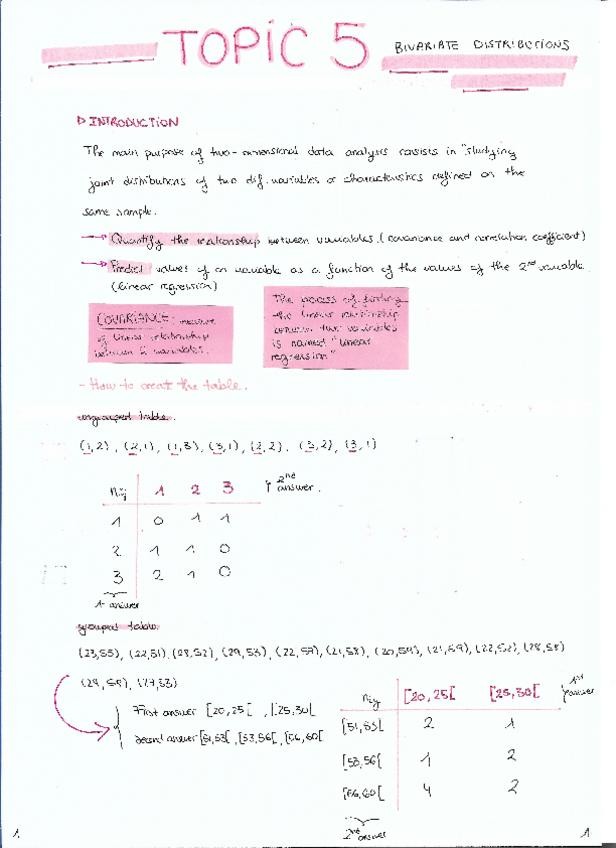 TOPIC 5 BIVARIATE DISTRIBUTIONS
▷ INTRODUCTION
The main purpose of two-dimensional data analysis consists in "studying
joint distributions of two dif. variables or characteristics defined on the
same sample.
→ Quantify the relationship between variables. (covariance and correlation coefficient)
→ Predict values of an variable as a function of the values of the 2nd variable
(linear regression)
COVARIANCE: measure
of linear relationship
between 2 variables.
The process of finding
the linear relationship
between two variables
is named "linear
regression"
- How to create the table.
ungrouped table.
(1,2), (2,1), (1,3), (3,1), (2,2), (3,2), (3,1)
nij 1 2 3 ↑ 2nd answer.
1 0 1 1
2 1 1 0
3 2 1 0
1st answer
grouped table
(23,55), (22,51), (28,52), (29,53), (22,57), (21,58), (20,59), (21,59), (22,52), (28,58)
First answer [20,25[ , [25,30[
Second answer [51,53[ , [53,56[ , [56,60[
nij [20,25[ [25,30[ 1st answer
[51,53[ 2 1
[53,56[ 1 2
[56,60[ 4 2
2nd answer
1 1